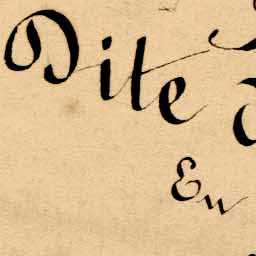 Dite
En